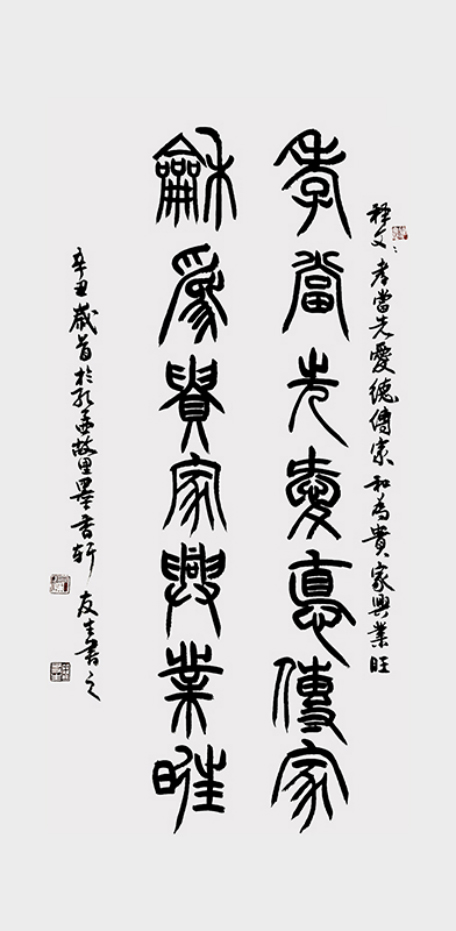 释文：孝當先愛德傳家和為貴家興業旺
孝當先愛悳傳家
龢為貴家興業旺
辛丑歲首於孔孟故里墨香轩友生書之